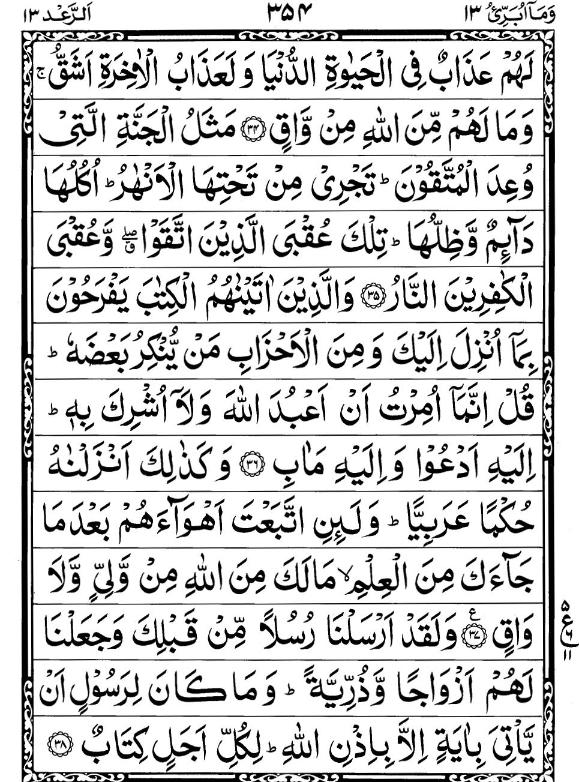 وَمَآ اُبَرِّئُ ١٣ ٣٥٤ اَلرَّعْد ١٣
لَهُمْ عَذَابٌ فِی الْحَیٰوةِ الدُّنْیَا وَ لَعَذَابُ الْاٰخِرَةِ اَشَقُّ ۚ
وَمَا لَهُمْ مِّنَ اللّٰهِ مِنْ وَّاقٍ ﴿۳۴﴾ مَثَلُ الْجَنَّةِ الَّتِیْ
وُعِدَ الْمُتَّقُوْنَ ؕ تَجْرِیْ مِنْ تَحْتِهَا الْاَنْهٰرُ ؕ اُكُلُهَا
دَآىِٕمٌ وَّظِلُّهَا ؕ تِلْكَ عُقْبَی الَّذِیْنَ اتَّقَوْا ۖۗ وَّعُقْبَی
الْكٰفِرِیْنَ النَّارُ ﴿۳۵﴾ وَالَّذِیْنَ اٰتَیْنٰهُمُ الْكِتٰبَ یَفْرَحُوْنَ
بِمَآ اُنْزِلَ اِلَیْكَ وَمِنَ الْاَحْزَابِ مَنْ یُّنْكِرُ بَعْضَهٗ ؕ
قُلْ اِنَّمَآ اُمِرْتُ اَنْ اَعْبُدَ اللّٰهَ وَلَآ اُشْرِكَ بِهٖ ؕ
اِلَیْهِ اَدْعُوْا وَاِلَیْهِ مَاٰبِ ﴿۳۶﴾ وَكَذٰلِكَ اَنْزَلْنٰهُ
حُكْمًا عَرَبِیًّا ؕ وَلَىِٕنِ اتَّبَعْتَ اَهْوَآءَهُمْ بَعْدَ مَا
جَآءَكَ مِنَ الْعِلْمِ ۙ مَا لَكَ مِنَ اللّٰهِ مِنْ وَّلِیٍّ وَّلَا
وَاقٍ ﴿۳۷﴾ ع وَلَقَدْ اَرْسَلْنَا رُسُلًا مِّنْ قَبْلِكَ وَجَعَلْنَا
۵ ع ۶ ۱۱
لَهُمْ اَزْوَاجًا وَّذُرِّیَّةً ؕ وَمَا كَانَ لِرَسُوْلٍ اَنْ
یَّاْتِیَ بِاٰیَةٍ اِلَّا بِاِذْنِ اللّٰهِ ؕ لِكُلِّ اَجَلٍ كِتَابٌ ﴿۳۸﴾